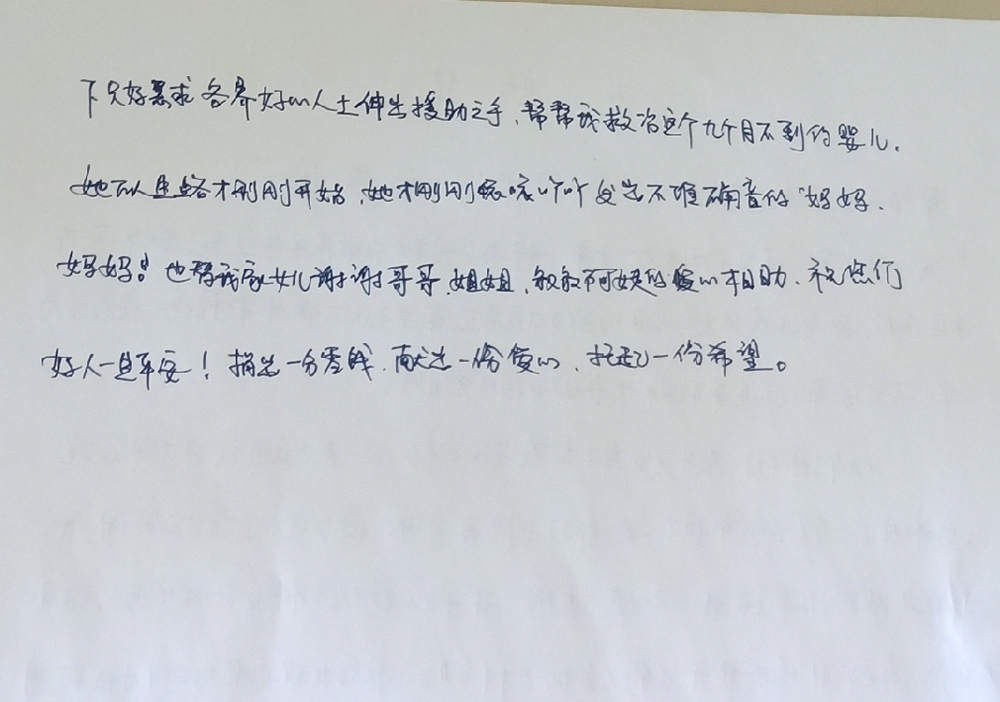 下只好恳求各界好心人士伸出援助之手,帮帮我救治这个九个月不到的婴儿.
她的人生路才刚刚开始,她才刚刚咿呀发出不准确音的“妈妈.
妈妈!也替我家女儿谢谢哥哥.姐姐,叔叔阿姨的爱心相助.祝您们
好人一生平安!捐出一分零钱.献出一份爱心,托起一份希望。